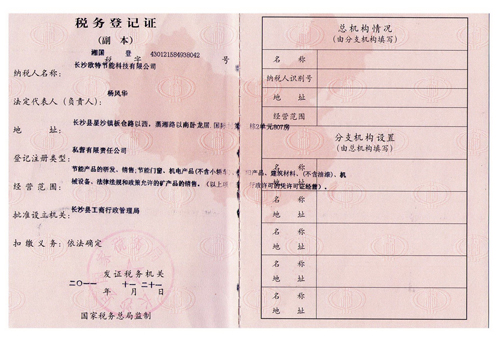 税务登记证
(副本)
湘国 登
税 字 430121584938042 号
长沙欧特节能科技有限公司
纳税人名称:
杨风华
法定代表人(负责人):
长沙县星沙镇板仓路以西,蒸湘路以南卧龙居.国际 栋2单元807房
地 址:
私营有限责任公司
登记注册类型:
节能产品的研发、销售;节能门窗、机电产品(不含小轿车)、 产品、建筑材料、(不含油漆)、机
械设备、法律法规和政策允许的矿产品的销售。(以上项 行政许可的凭许可证经营)。
经营范围:
长沙县工商行政管理局
批准设立机关:
扣缴义务:依法确定
发证税务机关
二〇一一年 十一月 二十一日
国家税务总局监制
总机构情况
(由分支机构填写)
名 称
纳税人识别号
地 址
经营范围
分支机构设置
(由总机构填写)
名 称
地 址
名 称
地 址
名 称
地 址
名 称
地 址
名 称
地 址